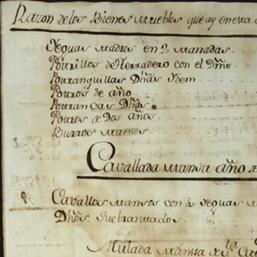 Razon de los Bienes Muebles que ay en esta
Yeguas Madres en 2 Manadas
Potrillos de Herradero con el Dh̃o.
Potranquillas Dh̃as Ydem
Potros de año
Potrancas Dh̃as
Potros de Dos años
Burros Maestros
Cavallada Mansa año de
Cavallos Mansos con 6 Yeguas M
Dh̃os Quebrantados.
Mulada Mansa